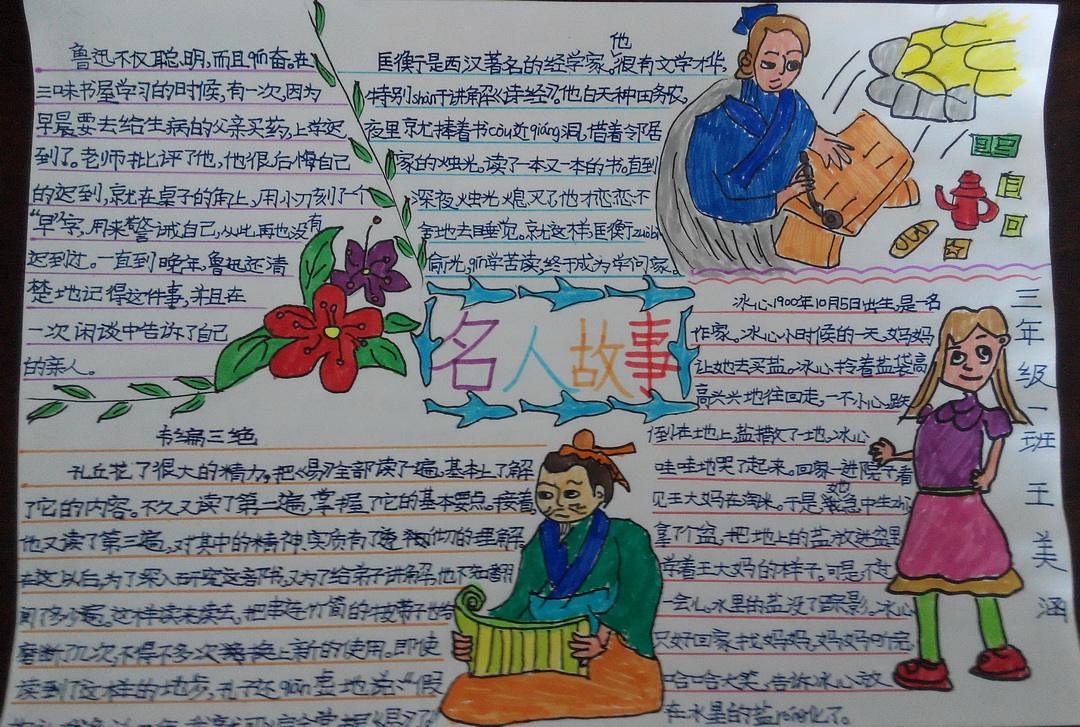 鲁迅不仅聪明,而且勤奋。在
三味书屋学习的时候,有一次,因为
早晨要去给生病的父亲买药,上学迟
到了。老师批评了他,他很后悔自己
的迟到,就在桌子的角上,用小刀刻了个
“早”字,用来警诫自己,从此再也没有
迟到过。一直到晚年,鲁迅还清
楚地记得这件事,并且在
一次闲谈中告诉了自己
的亲人。
匡衡是西汉著名的经学家。他很有文学才华,
特别shàn于讲解《诗经》。他白天种田务农,
夜里就捧着书còu近qiáng洞,借着邻居
家的烛光。读了一本又一本的书。直到
深夜,烛光熄灭了,他才恋恋不
舍地去睡觉。就这样,匡衡zuòbì
偷光,qín学苦读,终于成为学问家。
名人故事
冰心1900年10月5日出生,是一名
作家。冰心小时候的一天,妈妈
让她去买盐。冰心拎着盐袋高
高兴兴地往回走,一不小心,跌
倒在地上,盐撒了一地,冰心
哇哇地哭了起来。回家一进院子看
见王大妈在淘米。于是她急中生
拿了个盆,把地上的盐放进盆里
学着王大妈的样子。可是,不过
一会儿。水里的盐没了踪影。冰心
只好回家找妈妈,妈妈听完
哈哈大笑,告诉冰心放
在水里的盐róng化了。
三年级一班 王美涵
书编三绝
孔丘花了很大的精力,把《易》全部读了一遍,基本上了解
了它的内容。不久又读了第二遍,掌握了它的基本要点。接着
他又读了第三遍。对其中的精神、实质有了透彻的理解
在这以后,为了深入研究这部书,又为了给弟子讲解,他不知翻
阅了多少遍。这样读来读去,把串连竹简的牛皮带子也给
磨断了几次,不得不多次换上新的使用。即使
读到了这样的地步,孔子还qiān虚地说:“假